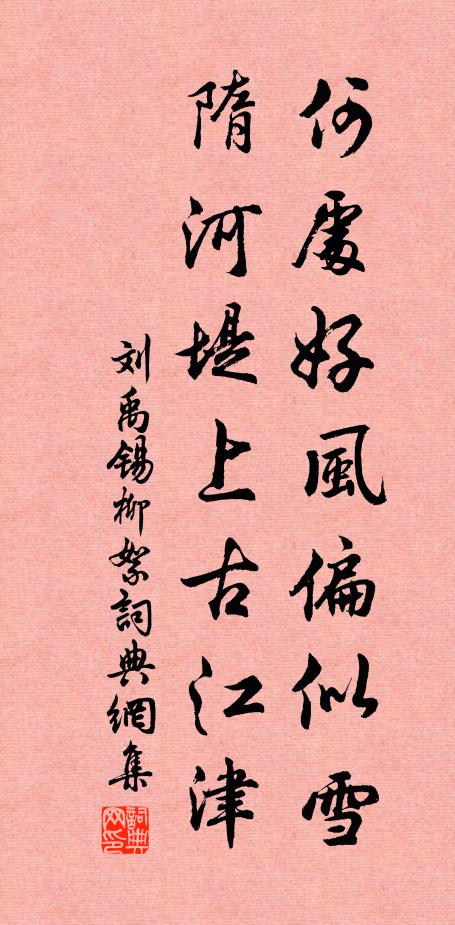 何處好風偏似雪
隋河堤上古江津
刘禹锡柳絮詞典網集
詞典网印